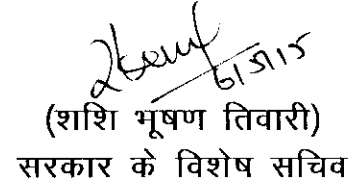 6/5/15
(शशि भूषण तिवारी)
सरकार के विशेष सचिव